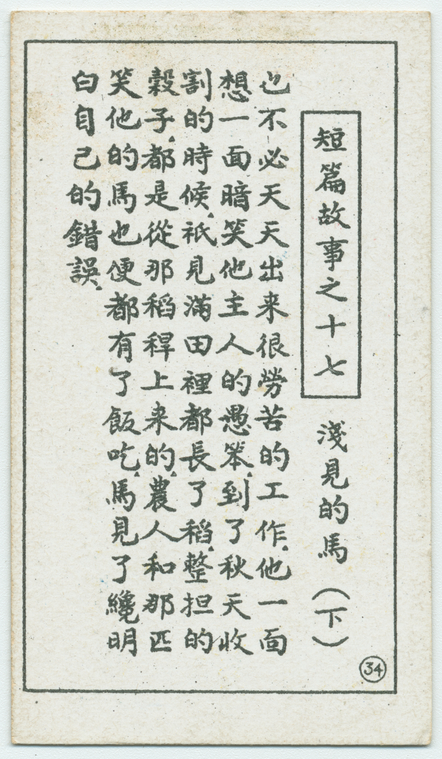 短篇故事之十七 淺見的馬（下）
也不必天天出来很勞苦的工作.他一面
想一面暗笑他主人的愚笨.到了秋天收
割的時候.祇見滿田裡都長了稻.整担的
穀子.都是從那稻稈上来的.農人和那匹
笑他的馬也便都有了飯吃.馬見了纔明
白自己的錯誤.
34